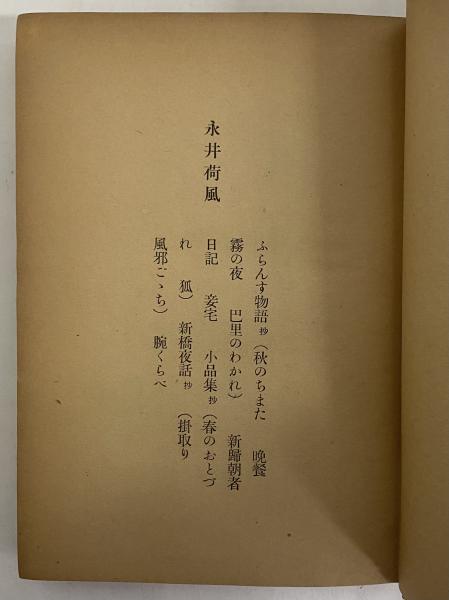 永井荷風
ふらんす物語抄（秋のちまた　晩餐
霧の夜　巴里のわかれ）　新歸朝者
日記　妾宅　小品集抄（春のおとづ
れ　狐）　新橋夜話抄　（掛取り
風邪ごゝち）　腕くらべ